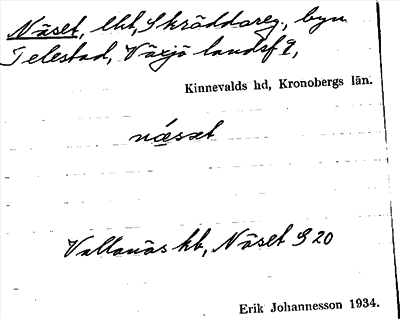 Näset, lht, Skräddareg., byn
Telestad, Växjö landsf g,
Kinnevalds hd, Kronobergs län.
næ̀sɛt
Vallanäs hb, Näset S 20
Erik Johannesson 1934.